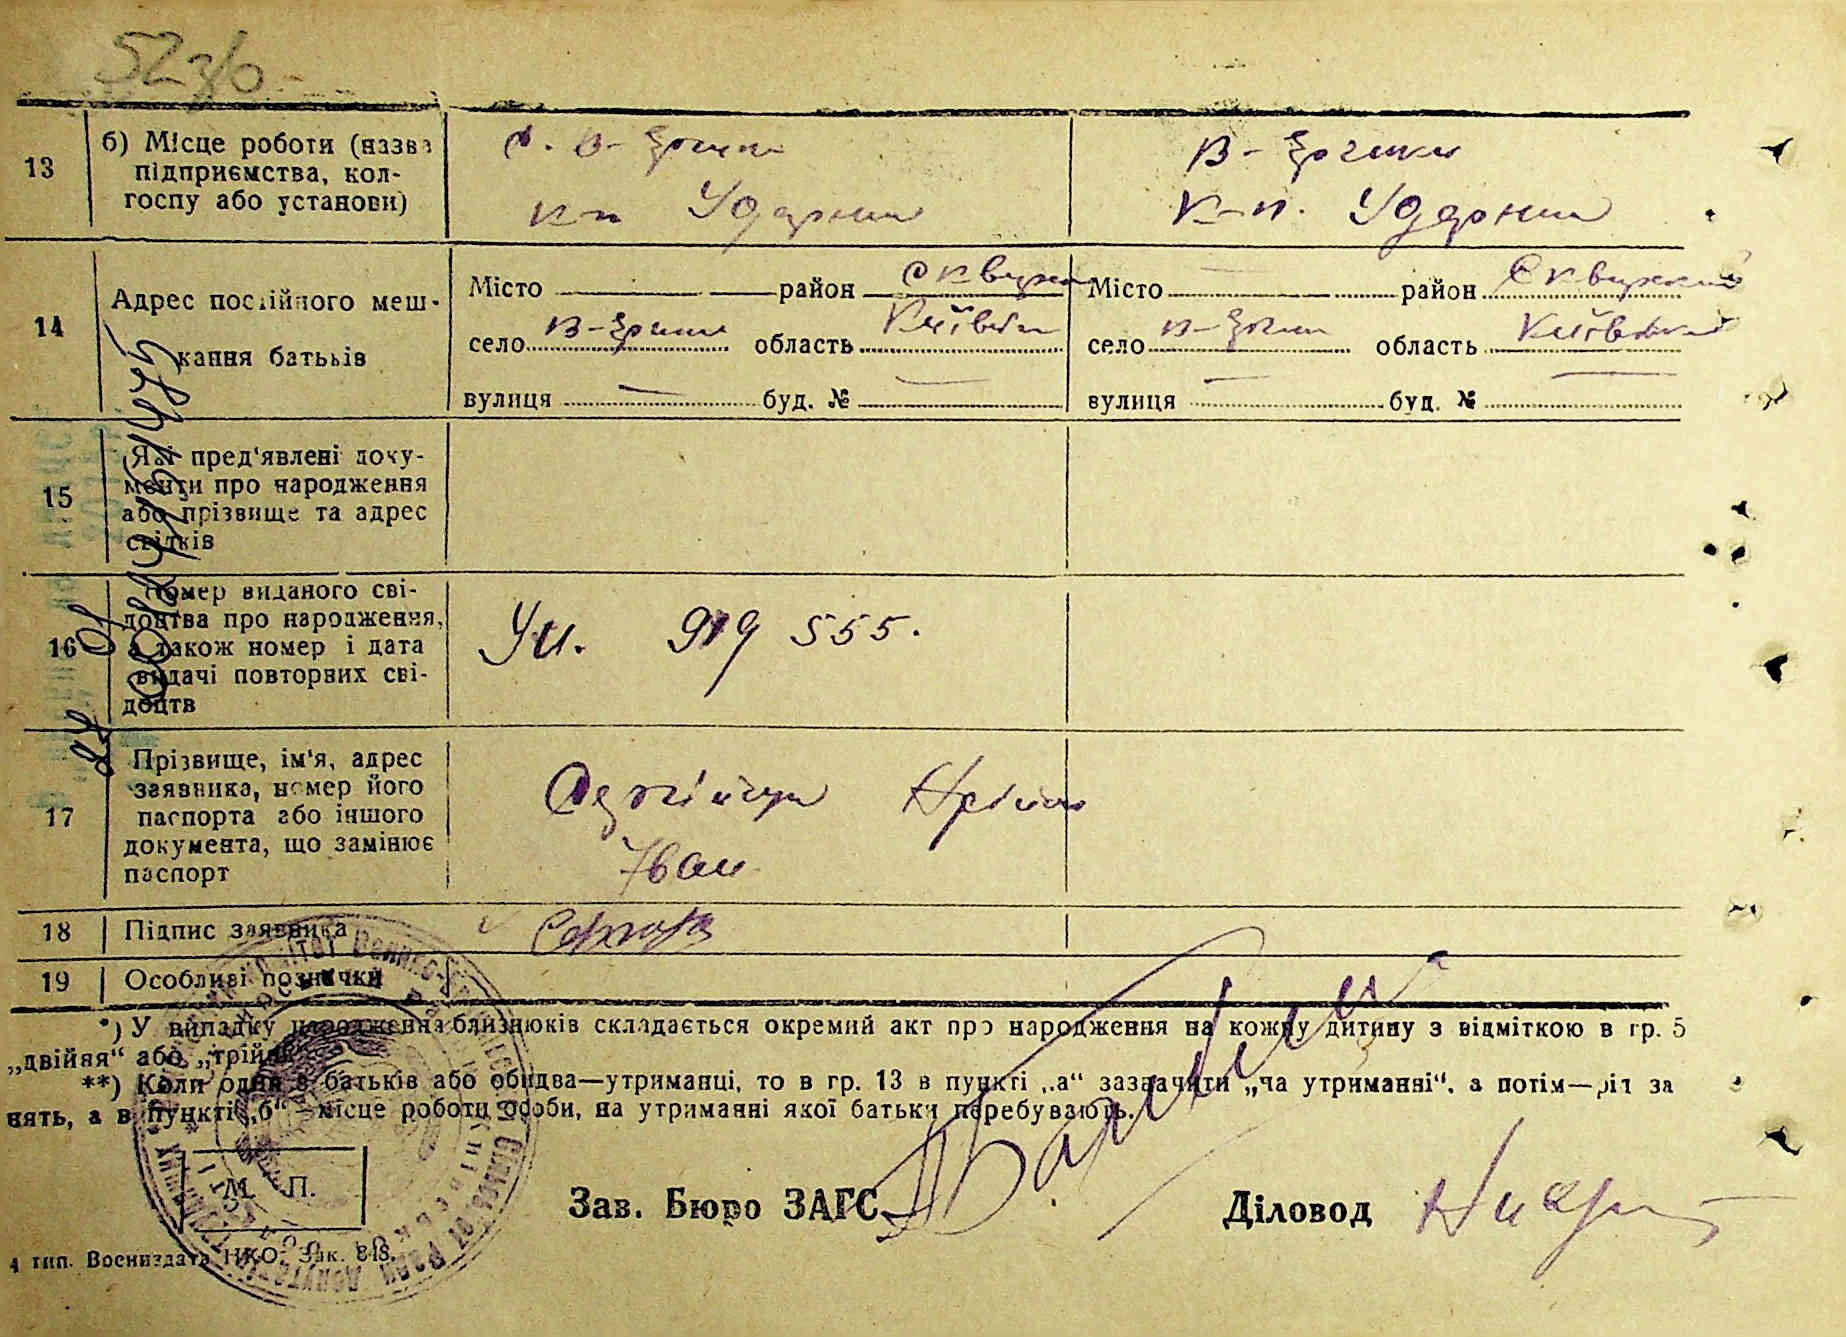 52 з/о
13 б) Місце роботи (назва підприємства, кол-
госпу або установи)
с. В-Ерчики
к-п Ударник
В-Ерчики
к-п. Ударник
14 Адрес постійного меш-
кання батьків
Місто район Сквирськ
село В-Ерчики область Київська
вулиця буд. №
Місто район Сквирський
село В-Ерчики область Київська
вулиця буд. №
15 Які пред'явлені доку-
менти про народження
або прізвище та адрес
свідків
16 Номер виданого сві-
доцтва про народження,
а також номер і дата
видачі повторних сві-
доцтв
Уи. 919 555.
17 Прізвище, ім'я, адрес
заявника, номер його
паспорта або іншого
документа, що замінює
паспорт
Іван
18 Підпис заявника
19 Особливі позначки
*) У випадку народження близнюків складається окремий акт про народження на кожну дитину з відміткою в гр. 5
„двійня“ або „трійня“
**) Коли один з батьків або обидва—утриманці, то в гр. 13 в пункті „а“ зазначити „на утриманні“, а потім—рід за
нять, а в пункті „б“—місце роботи особи, на утриманні якої батьки перебувають.
М. П.
Зав. Бюро ЗАГС
Діловод
4 тип. Воениздата НКО. Зак. 818.